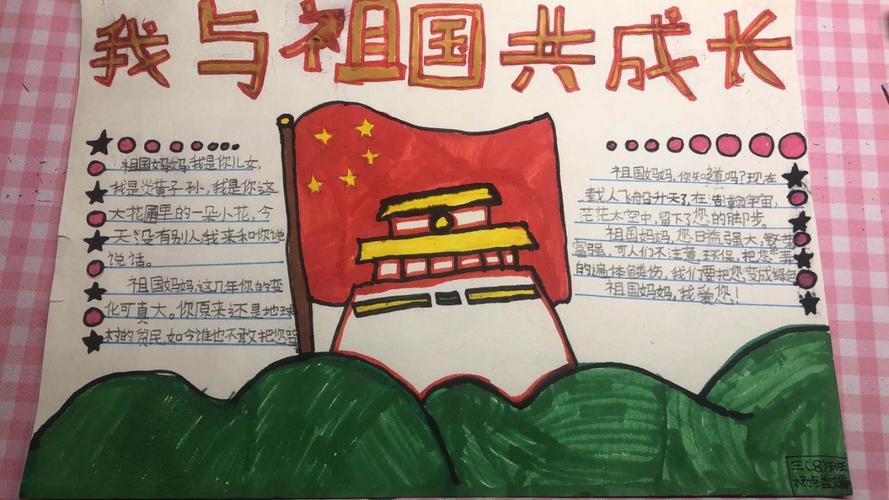 我与祖国共成长
祖国妈妈,我是你儿女,
我是炎黄子孙,我是你这
大花园里的一朵小花,今
天没有别人我来和你说
说话。
祖国妈妈,这几年你的变
化可真大。你原来还是地球
村的贫民,如今谁也不敢把您
祖国妈妈,你知道吗?现在
载人飞船升天了,在浩瀚宇宙,
茫茫太空中,留下了您的脚步。
祖国妈妈,您日益强大,繁荣
富强,可人们不注意环保,把您
的遍体鳞伤,我们要把您变成绿色
祖国妈妈,我爱您!
三(8)班